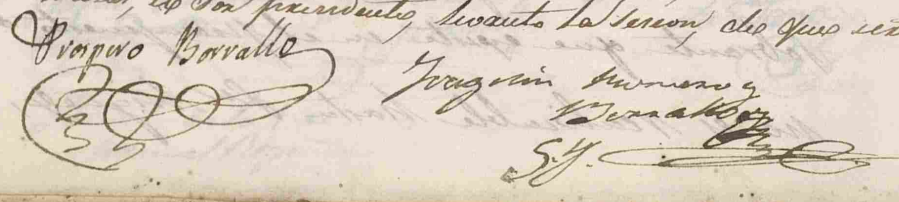 el Sor presidente, levanto la Sesion, de que
Prospero Borrallo
Joaquin Moreno y
Borrallo
S. J.